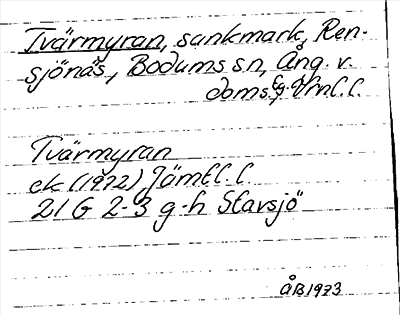 Tvärmyran, sankmark, Ren-
sjönäs, Bodums sn, Ång. v.
doms. g. Vrnl. l.
Tvärmyran
ek (1972), Jämtl. l.
21 G 2-3 g-h Stavsjö
ÅB 1973